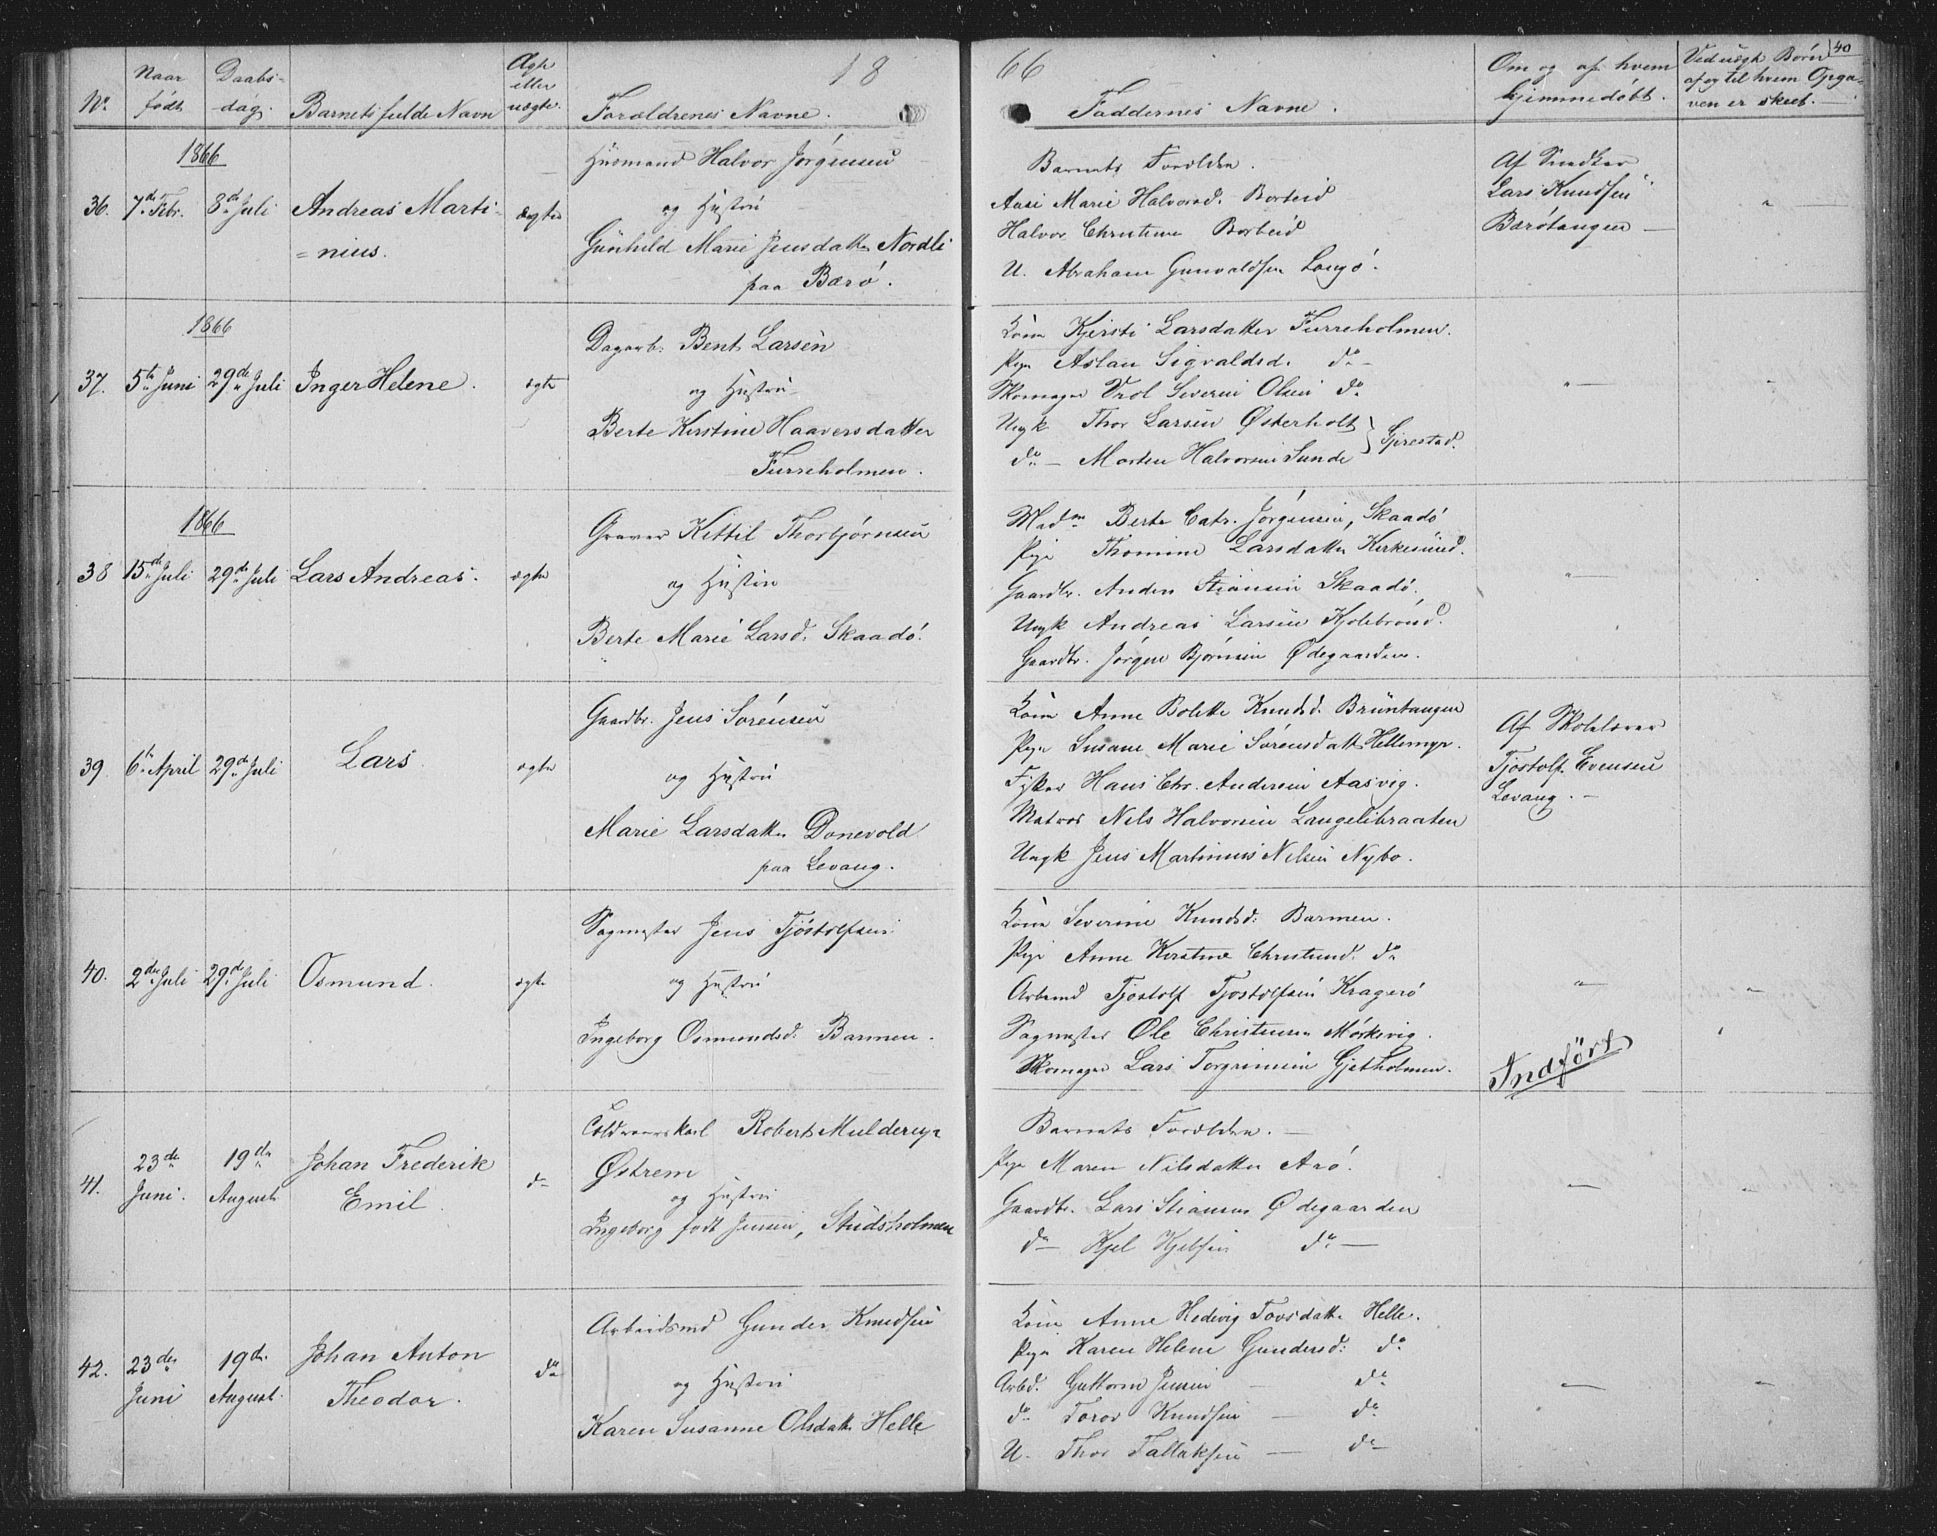 18 66
40
No.
Naar født
Daabs-dag.
Barnets fulde Navn
Ægte eller uægte.
Forældrenes Navne.
Faddernes Navne.
Om og af hvem hjemmedøbt.
Ved uægte Børn af og til hvem Opga-ven er skeet.
1866
36. 7de Febr. 8de Juli Andreas Marti-
=nius.
ægte
Husmand Halvor Jørgensen
og Hustru
Gunhild Marie Jensdatter Nordli
paa Barø.
Barnets Forældre.
Aase Marie Halvorsd. Borteid
Halvor Christensen Borteid
U. Abraham Gunvaldsen Langø.
Af Snedker
Lars Knudsen
Barøtangen
1866
37. 5te Juni 29de Juli Inger Helene.
ægte
Dagarb. Bent Larsen
og Hustru
Berte Kirstine Haaversdatter
Furreholmen.
Kone Kjersti Larsdatter Furreholmen.
Pige Aslau Sigvaldsd. do
Skomager Severin Olsen do
Ungk Thor Larsen Østerholt
do Morten Halvorsen Sunde } Gjerestad.
1866
38 15de Juli 29de Juli Lars Andreas.
ægte
Graver Kittil Thorbjørnsen
og Hustru
Berte Marie Larsd. Skaadø.
Madm Berte Catr. Jørgensen, Skaadø
Pige Thomine Larsdatter Kirkesund.
Gaardbr. Anders Stiansen Skaadø.
Ungk Andreas Larsen Kjølebrønd.
Gaardbr. Jørgen Bjørnsen Ødegaarden.
39. 6te April 29de Juli Lars
ægte
Gaardbr. Jens Sørensen
og Hustru
Marie Larsdatter Donevold
paa Levang.
Kone Anne Bolette Knudsd. Brüntangen
Pige Susane Marie Sørensdatt. Hellemyr.
Fisker Hans Chr. Andersen Aasvig.
Matros Nils Halvorsen Langelibraaten
Ungk Jens Martinius Nilsen Nybo.
Af Skolelærer
Tjostolf Evensen
Levang.
40. 2den Juli 29de Juli Osmund.
ægte
Sagmester Jens Tjøstolfsen
og Hustru
Ingeborg Osmundsd. Barmen.
Kone Severine Knudsd. Barmen.
Pige Anne Kirstine Christensd. do
Arbmd Tjostolf Tjostolfsen Kragerø
Sagmester Ole Christensen Mørkevig.
Skomager Lars Torgrimsen Gjetholmen.
Indført
41. 23de Juni. 19de August Johan Frederik
Emil.
do
Toldvæsenskarl Robert
Østrem
og Hustru
Ingeborg født Jensen, Stüdsholmen
Barnets Forældre.
Pige Maren Nilsdatter Arø.
Gaardbr. Lars Stiansen Ødegaarden
do Kjel Kjelsen do
42. 23de Juni 19de August. Johan Anton
Theodor.
do
Arbeidsmd Gunder Knudsen
og Hustru
Karen Susanne Olsdatt. Helle
Kone Anne Hedevig Tovsdatter Helle.
Pige Karen Helene Gundersd. do
Arbd. Guttorm Jensen do
do Torov Knudsen do
U. Thor Tallaksen do